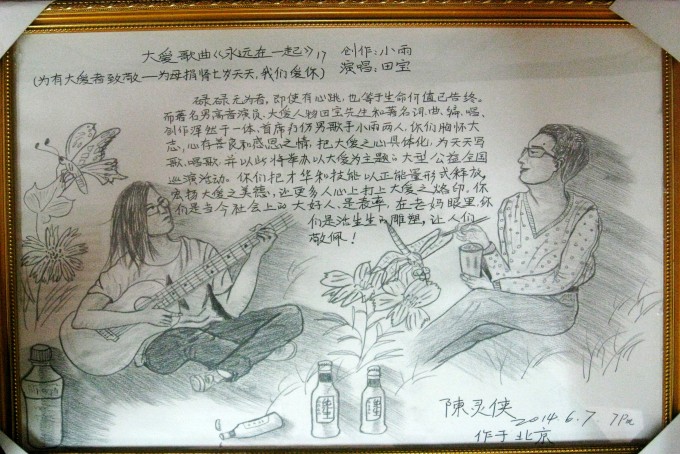 大爱歌曲《永远在一起》17 创作:小雨
(为有大爱者致敬——为母捐肾七岁天天,我们爱你) 演唱:田宝
碌碌无为者,即使有心跳,也等于生命价值已告终。
而著名男高音演员、大爱人物田宝先生和著名词、曲、编、唱、
创作浑然于一体,首席力仿男歌手小雨两人,你们胸怀大
志,心存善良和感恩之情,把大爱之心具体化,为天天写
歌、唱歌,并以此将举办以大爱为主题的大型公益全国
巡演活动。你们把才华和技能以正能量形式释放,
宏扬大爱之美德,让更多人心上打上大爱之烙印,你
们是当今社会上的大好人、是表率,在老奶眼里,你
们是活生生的雕塑,让人们
敬佩!
纯生
纯生
陳灵侠
2014.6.7.
作于北京